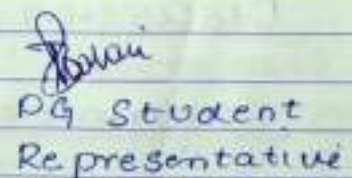 PG Student
Representative